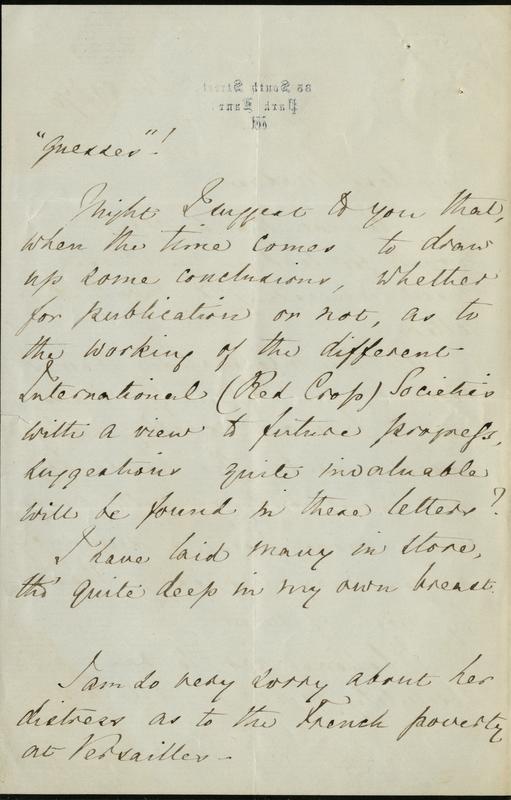 35 South Street
Park Lane
W
"guesses"!
Might I suggest to you that,
when the time comes to draw
up some conclusions, whether
for publication or not, as to
the working of the different
International (Red Cross) Societies
with a view to future progress,
suggestions quite invaluable
will be found in these letters?
I have laid many in store,
tho' quite deep in my own breast.
I am so very sorry about her
distress as to the French poverty
at Versailles –